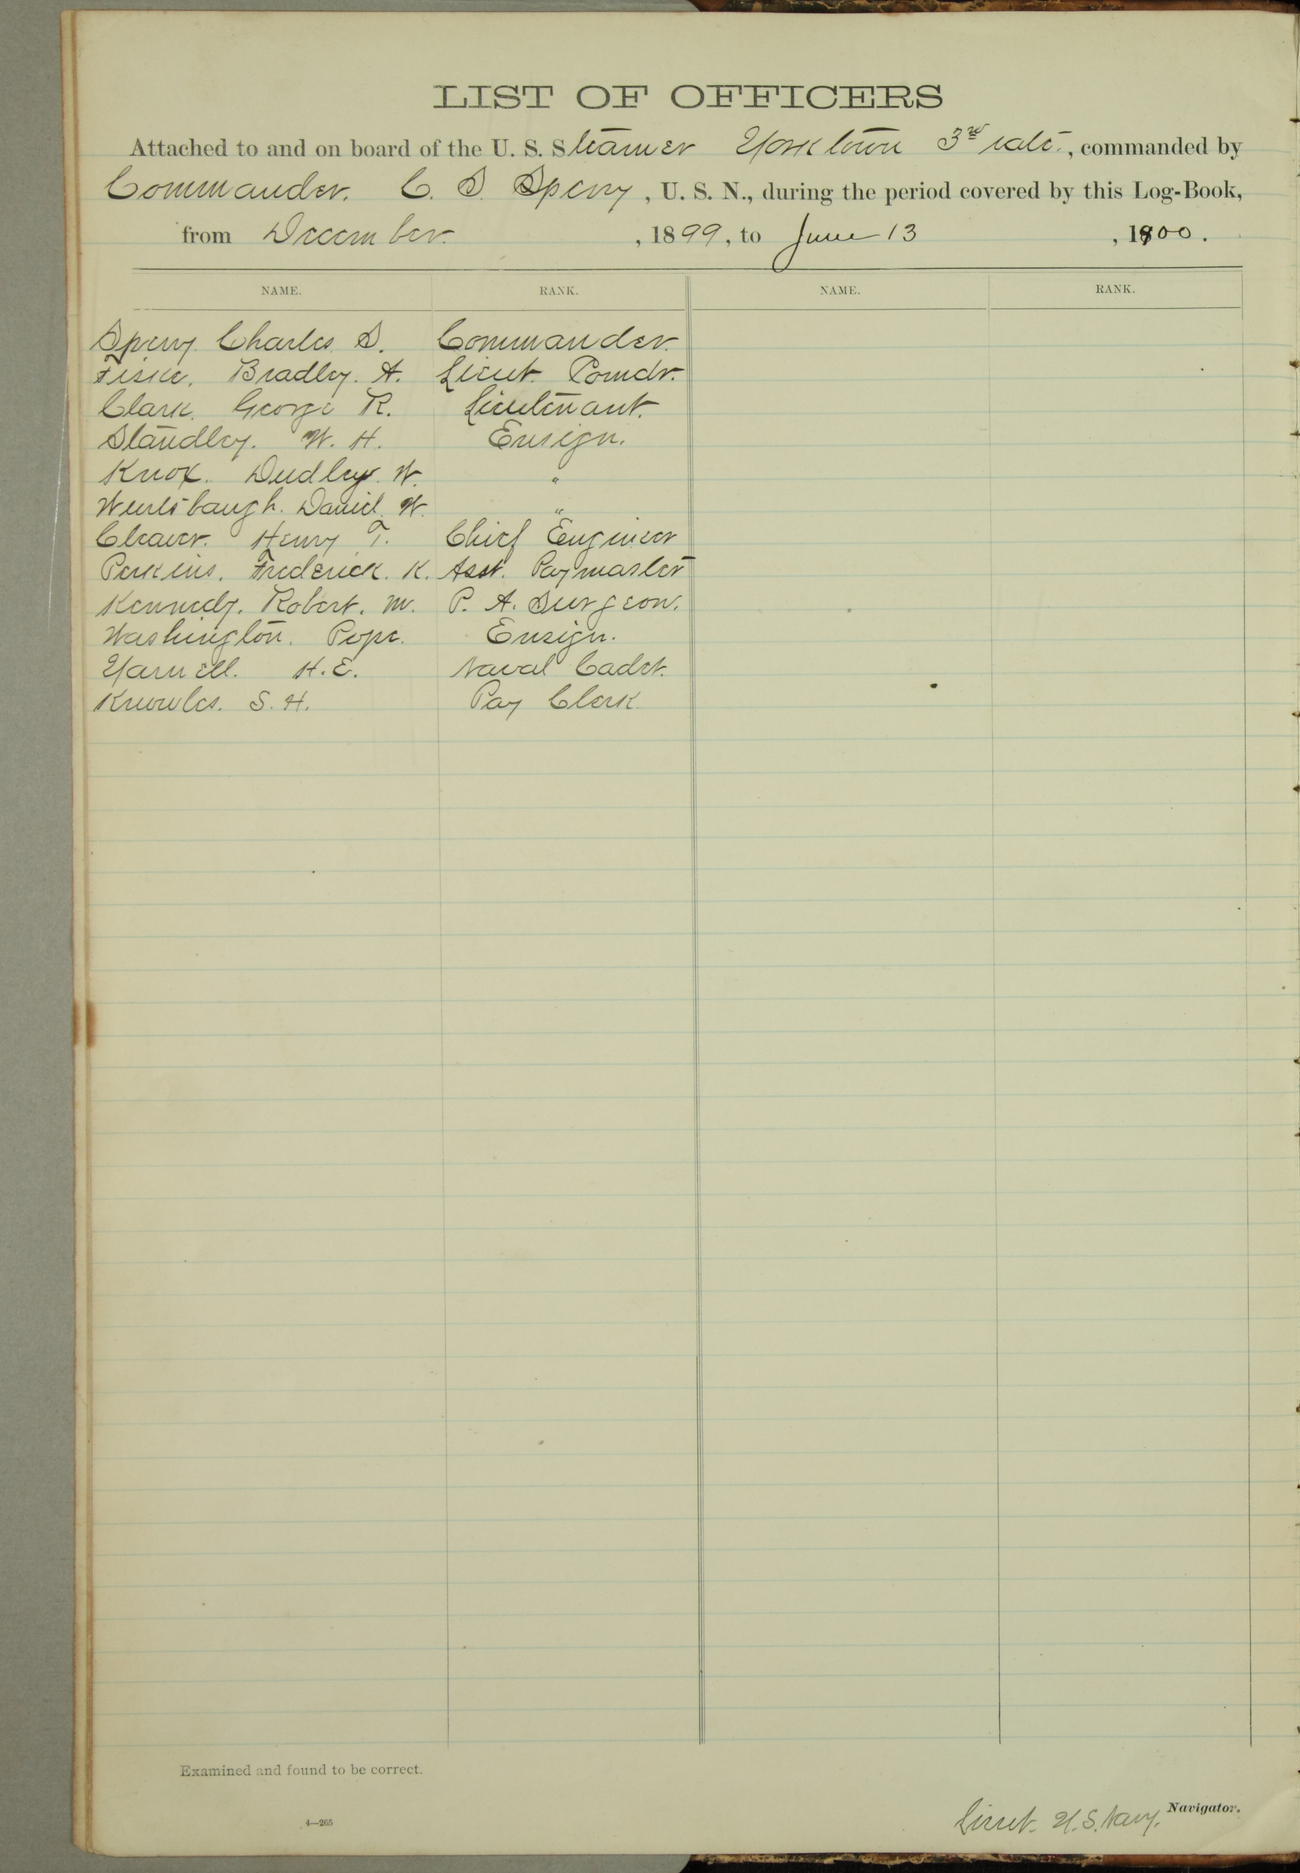 LIST OF OFFICERS
Attached to and on board of the U. S. Steamer Yorktown 3rd rate, commanded by
Commander. C. S. Sperry, U. S. N., during the period covered by this Log-Book,
from December. , 1899, to June 13 , 1900.
NAME. RANK. NAME. RANK.
Sperry Charles S. Commander.
Fiske. Bradley. A. Lieut. Comdr.
Clark. George R. Lieutenant.
Standley. W. H. Ensign.
Knox. Dudley W. "
Wurtsbaugh. Daniel. W. "
Cleaver. Henry T. Chief Engineer
Perkins. Frederick. K. Asst. Paymaster
Kennedy. Robert. M. P. A. Surgeon.
Washington. Pope. Ensign.
Yarnell. H. E. Naval Cadet.
Knowles. S. H. Pay Clerk
Examined and found to be correct.
Lieut. U. S. Navy. Navigator.
4—265